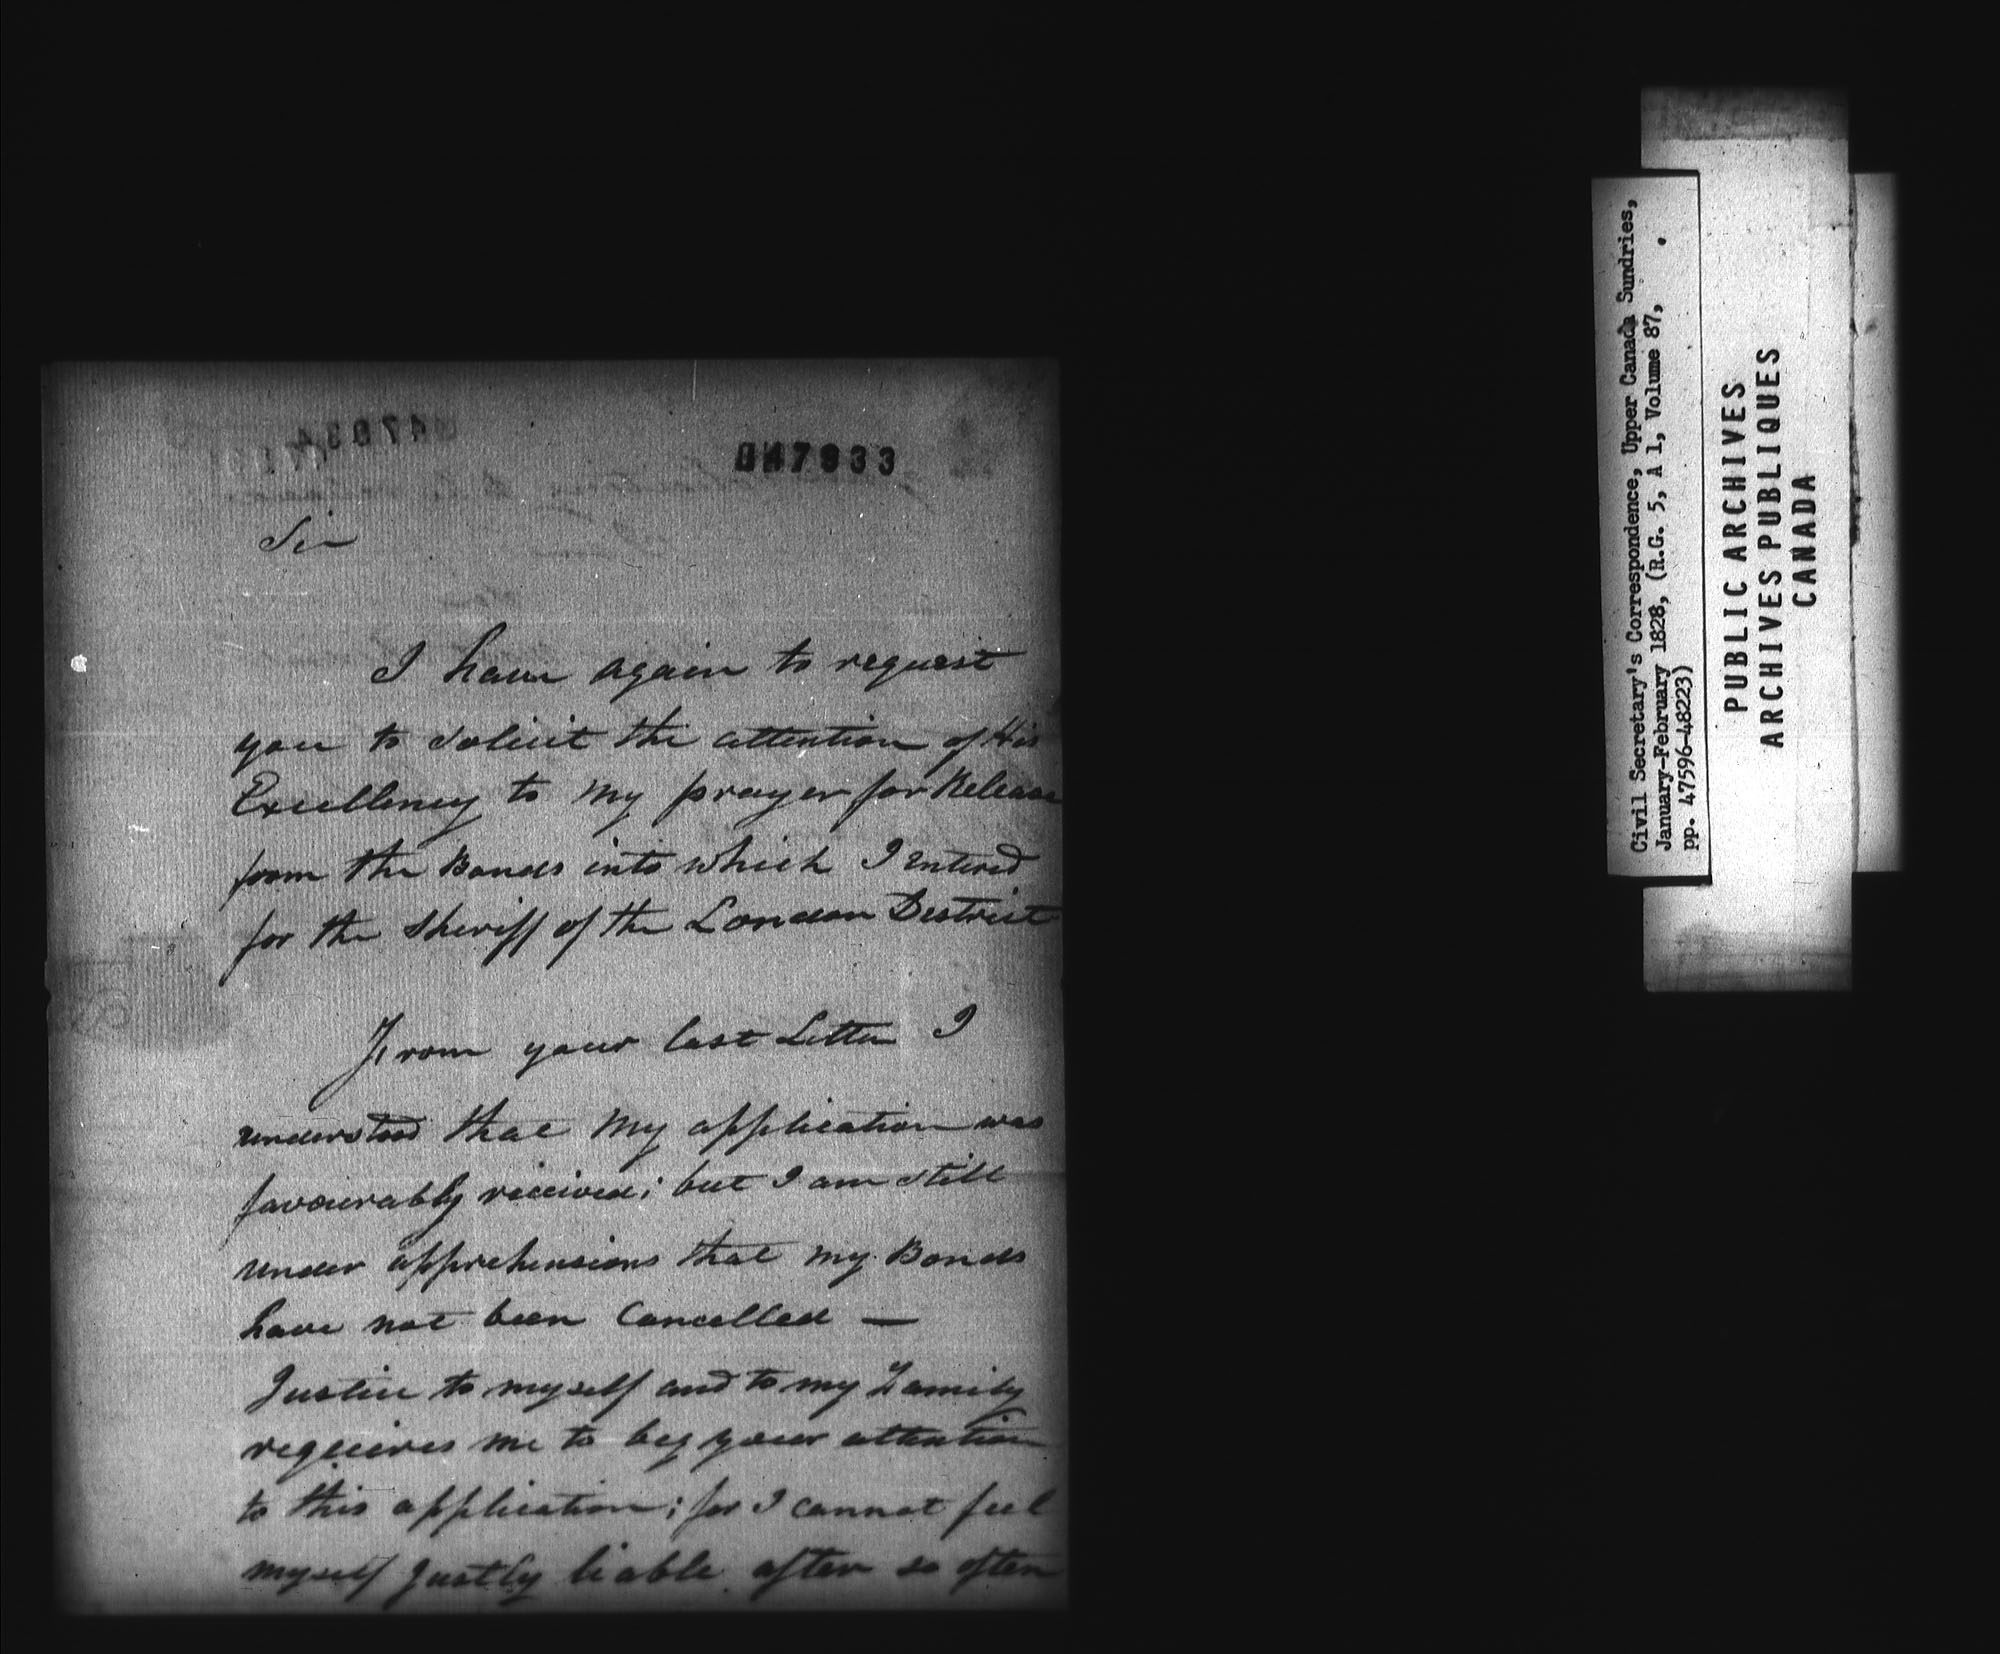 047933
Sir
I have again to request
you to solicit the attention of His
Excellency to my prayer for Release
from the Bonds into which I entered
for the Sheriff of the London District
From your last Letter I
understood that my application was
favourably received; but I am still
under apprehensions that my Bonds
have not been Cancelled —
Justice to myself and to my Family
requires me to beg your attention
to this application; for I cannot feel
myself justly liable after so often
Civil Secretary's Correspondence, Upper Canada Sundries,
January-February 1828, (R.G. 5, A 1, Volume 87,
pp. 47596-48223)
PUBLIC ARCHIVES
ARCHIVES PUBLIQUES
CANADA